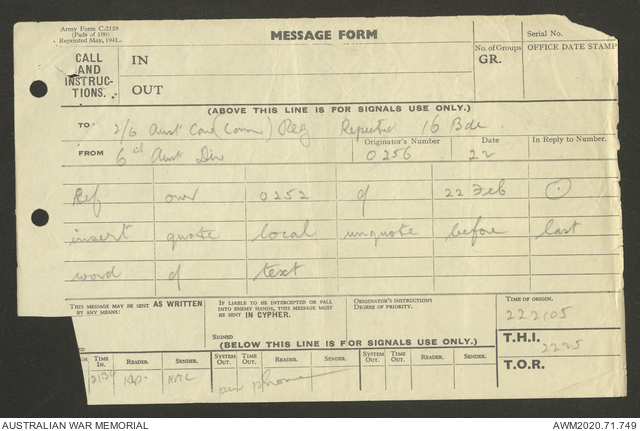 Army Form C.2128
(Pads of 100)
Reprinted May, 1941.
MESSAGE FORM
Serial No.
CALL AND INSTRUC- TIONS.
IN
OUT
No. of Groups
GR.
OFFICE DATE STAMP
(ABOVE THIS LINE IS FOR SIGNALS USE ONLY.)
TO 2/6 Aust Cav (Comm) Reg Repeated 16 Bde
FROM 6th Aust Div
Originator's Number 0256
Date 22
In Reply to Number.
Ref our 0252 of 22 Feb
insert quote local unquote before last
word of text
THIS MESSAGE MAY BE SENT AS WRITTEN BY ANY MEANS:
IF LIABLE TO BE INTERCEPTED OR FALL INTO ENEMY HANDS, THIS MESSAGE MUST BE SENT IN CYPHER.
SIGNED
ORIGINATOR'S INSTRUCTIONS
DEGREE OF PRIORITY.
TIME OF ORIGIN.
222105
(BELOW THIS LINE IS FOR SIGNALS USE ONLY.)
T.H.I. 2225
TIME IN. READER. SENDER. SYSTEM OUT TIME OUT. READER. SENDER. SYSTEM OUT TIME OUT. READER. SENDER.
T.O.R.
per phone
AUSTRALIAN WAR MEMORIAL
AWM2020.71.749